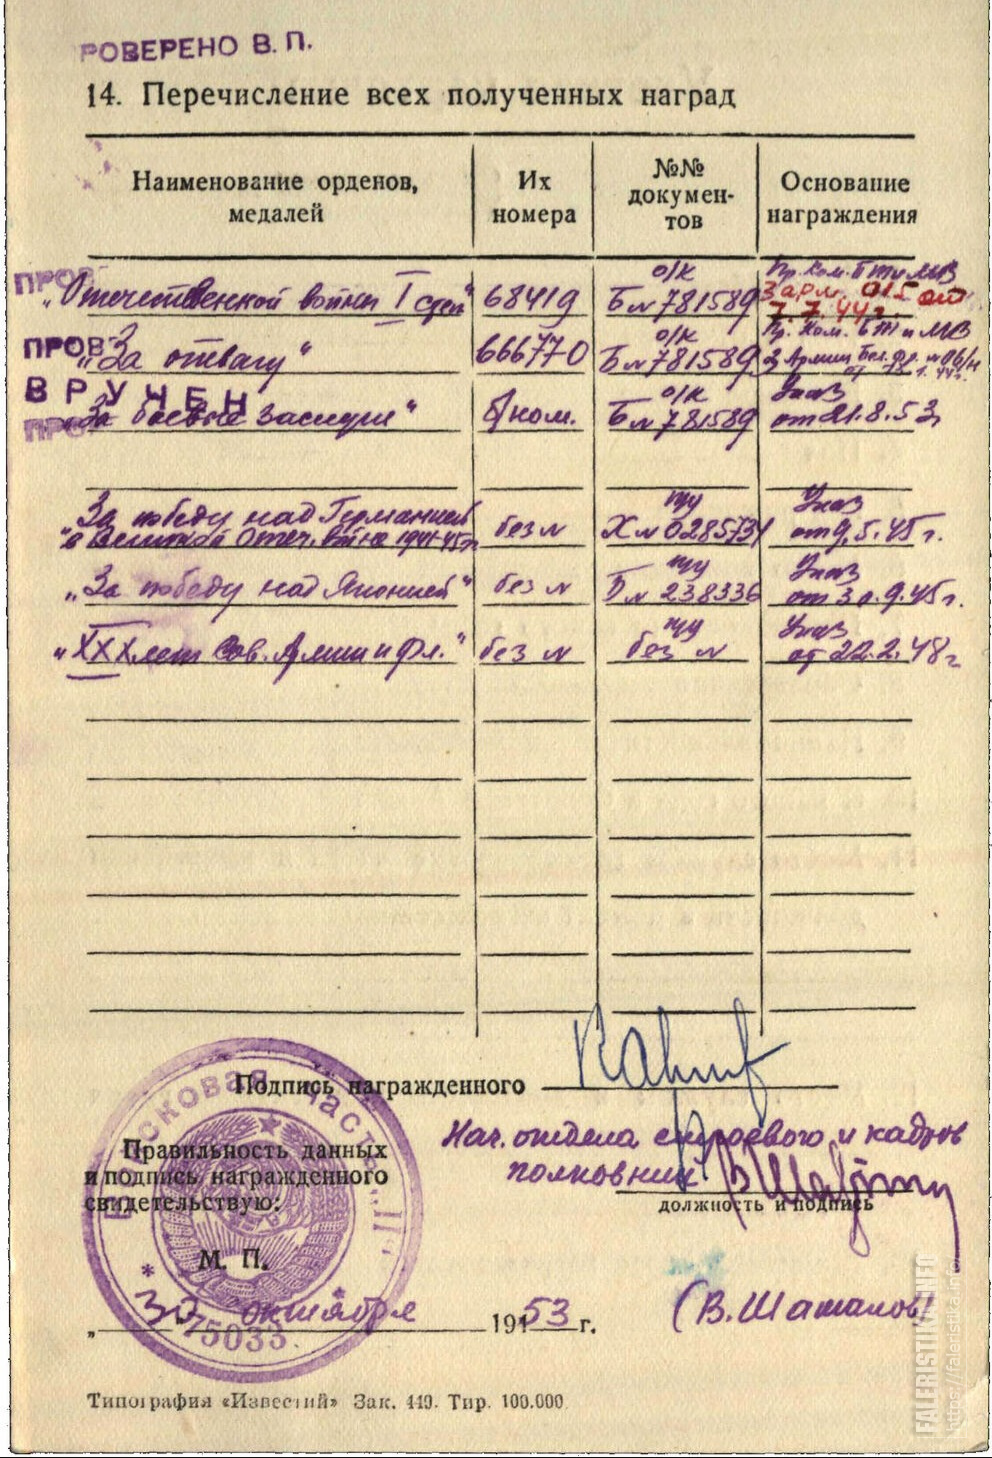 РОВЕРЕНО В. П.
14. Перечисление всех полученных наград
Наименование орденов, медалей
Их номера
№№ докумен-тов
Основание награждения
ПРОВ
„Отечественной войны I степ“ 68419 о/к Б № 781589 Пр. Ком. БТ и МВ 3 арм. 015 от 7.7.44 г.
ПРОВ
„За отвагу“ 666770 о/к Б № 781589 Пр. Ком. БТ и МВ 3 Армии Бел. фр.
ВРУЧЕН
ПРО
„За боевые заслуги“ б/ном. о/к Б № 781589 Указ от 21.8.53
„За победу над Германией в Великой Отеч. войне 1941-45 г“ без № п/у Х № 0285731 Указ от 9.5.45 г.
„За победу над Японией“ без № п/у Г № 238336 Указ от 30.9.45 г.
„XXX лет Сов. Армии и Фл.“ без № п/у без № Указ от 22.2.48 г
Подпись награжденного
Правильность данных
и подпись награжденного
свидетельствую:
Нач. отдела строевого и кадров
полковник В Шаталов
должность и подпись
М. П.
Войсковая часть
75033
„ 30 октября 1953 г.
(В. Шаталов)
Типография «Известий» Зак. 449. Тир. 100.000
FALERISTIKA.INFO
https://faleristika.info